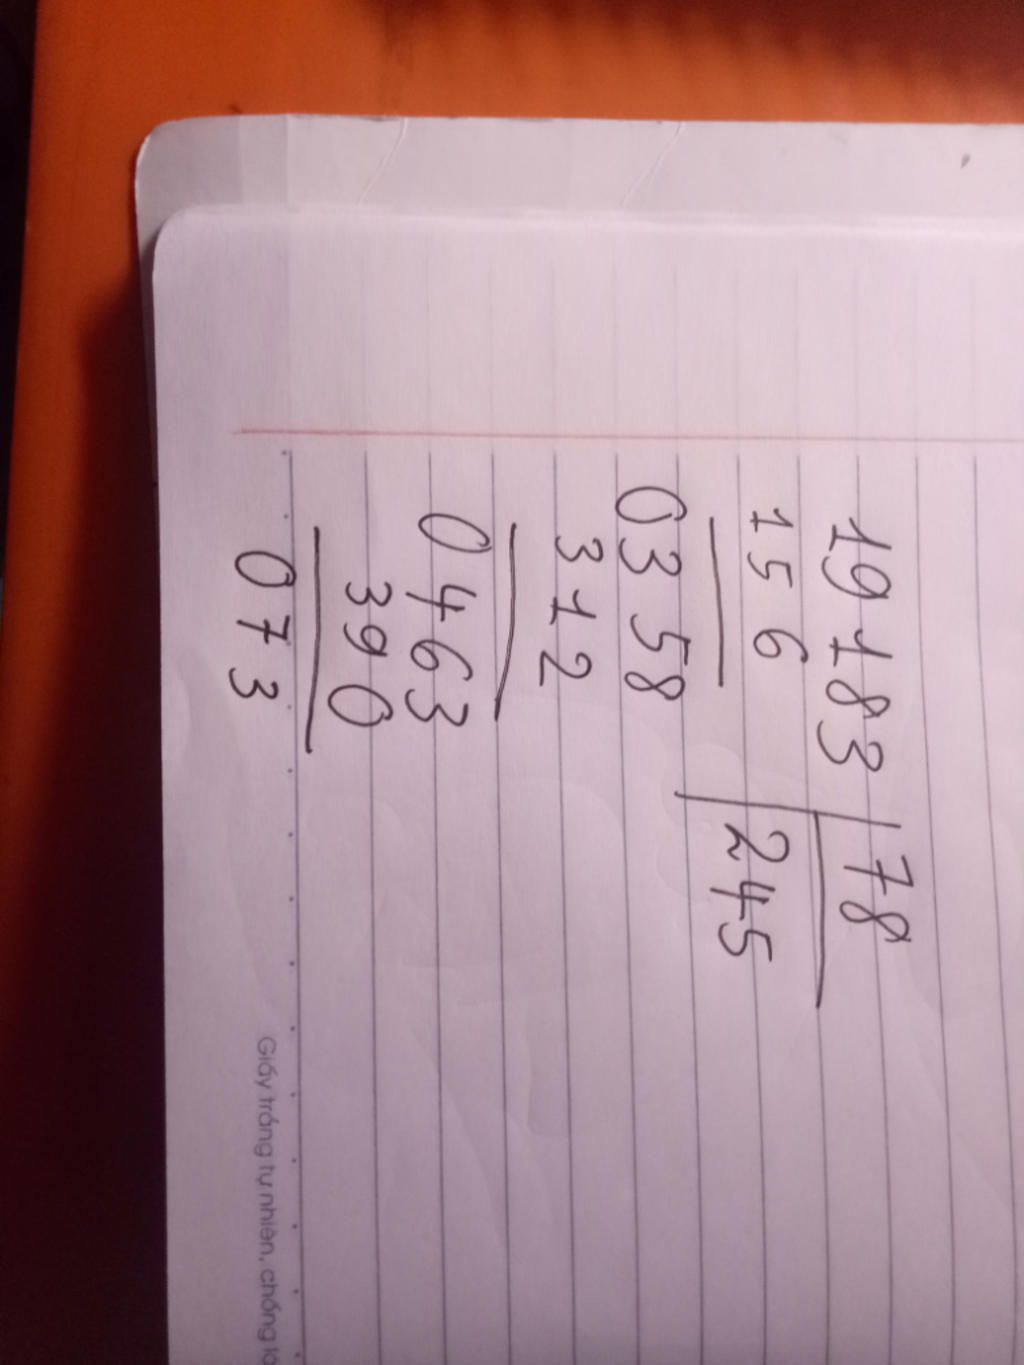 19183 78
156 245
0358
312
0463
390
073
Giấy trắng tự nhiên, chống